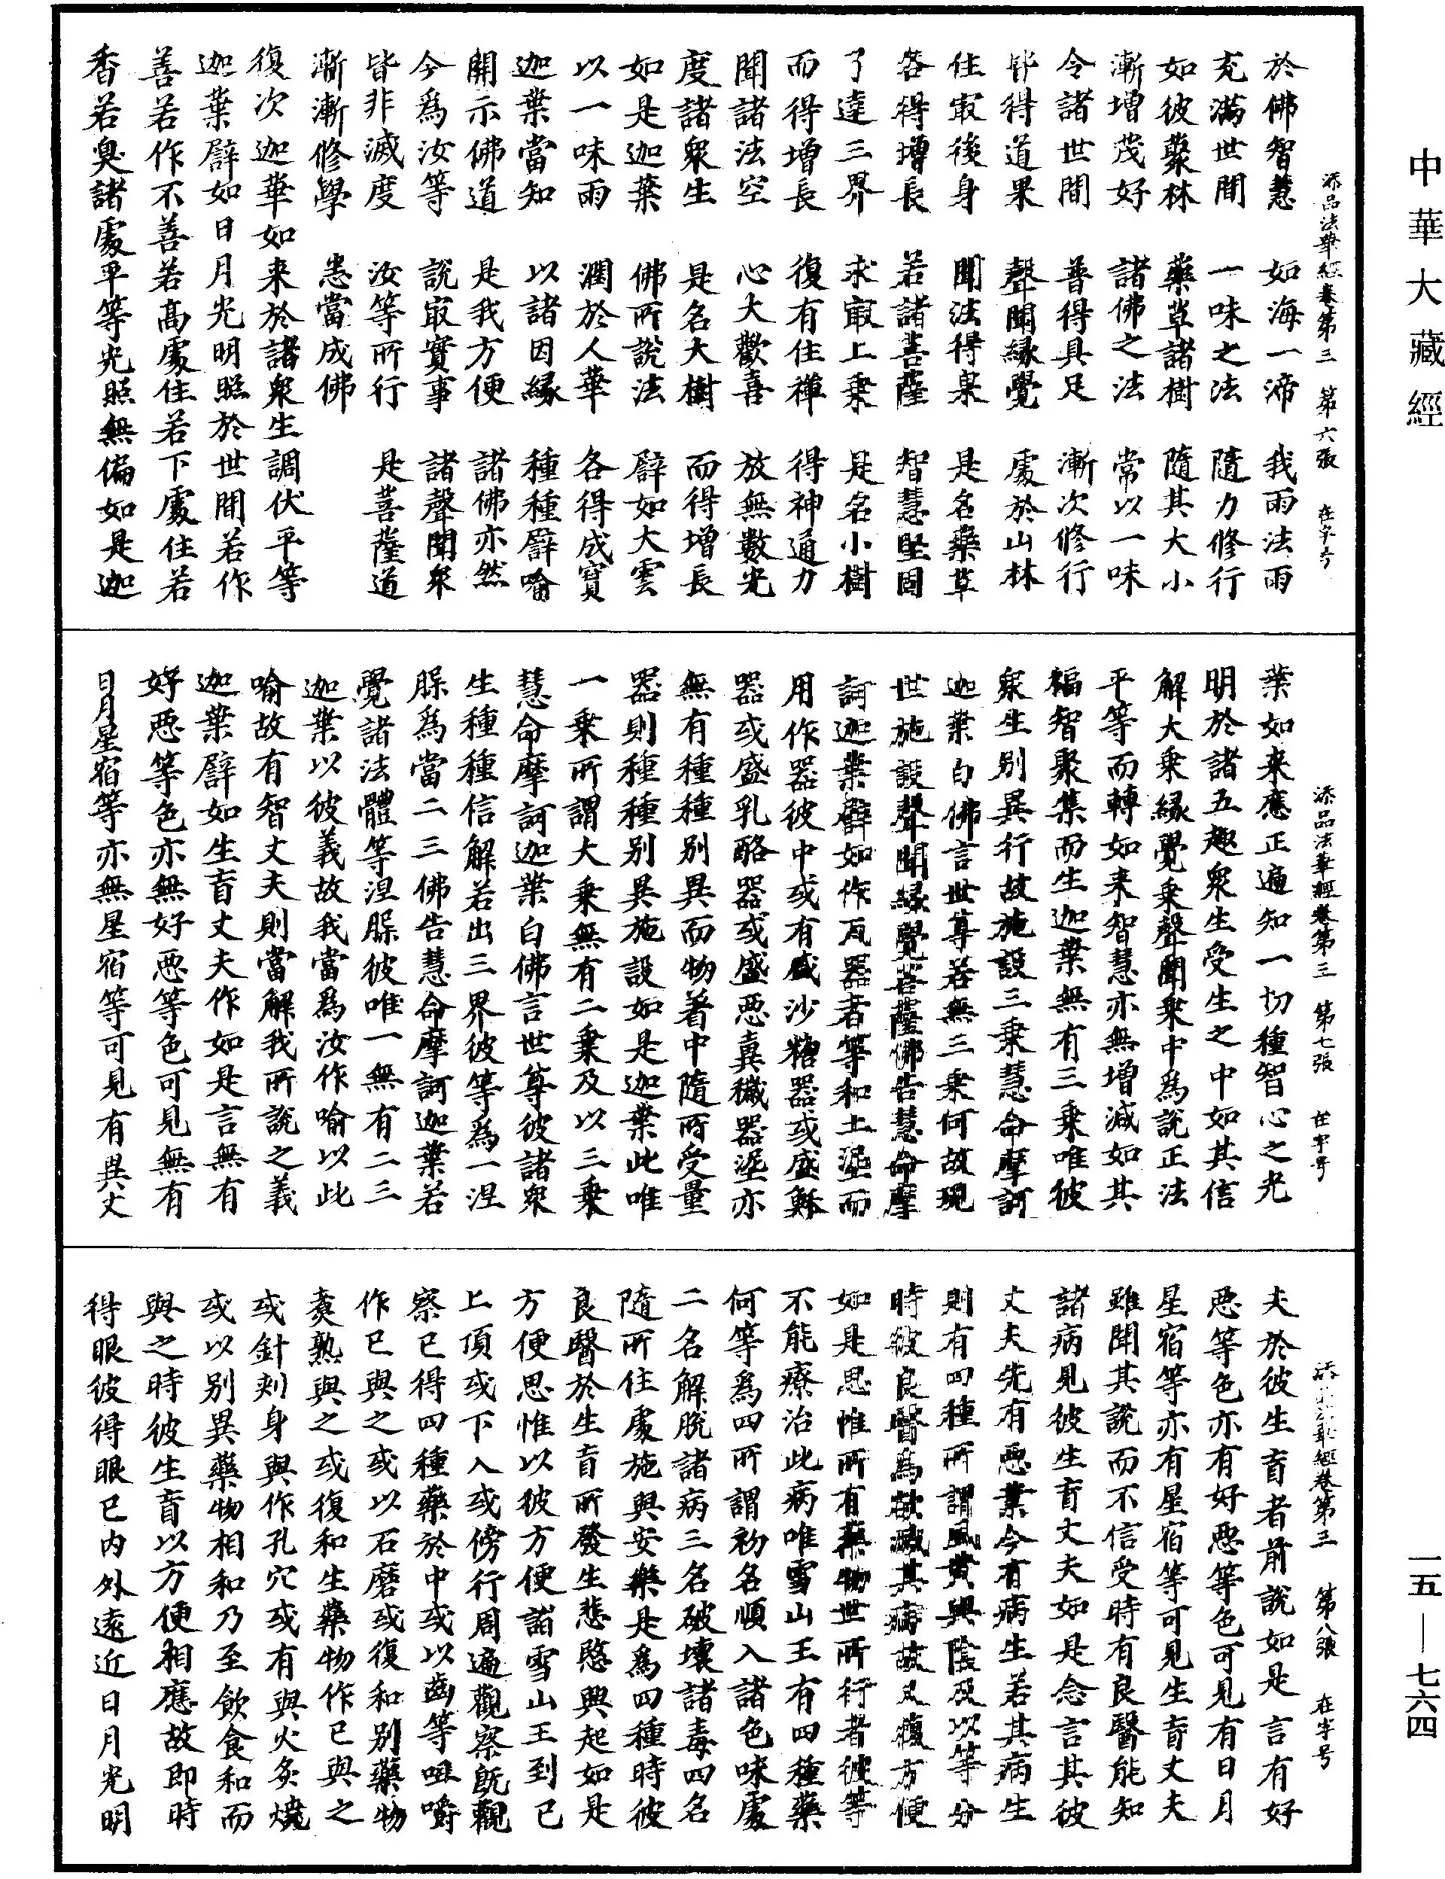 中華大藏經
添品法華經卷第三　第六張　在字号
於佛智慧　如海一渧　我雨法雨
充滿世間　一味之法　隨力修行
如彼藂林　藥草諸樹　隨其大小
漸增茂好　諸佛之法　常以一味
令諸世間　普得具足　漸次修行
皆得道果　聲聞緣覺　處於山林
住㝡後身　聞法得果　是名藥草
各得增長　若諸菩薩　智慧堅固
了達三界　求㝡上乗　是名小樹
而得增長　復有住禪　得神通力
聞諸法空　心大歡喜　放無數光
度諸衆生　是名大樹　而得增長
如是迦葉　佛所說法　譬如大雲
以一味雨　潤於人華　各得成實
迦葉當知　以諸因緣　種種譬喻
開示佛道　是我方便　諸佛亦然
今為汝等　說㝡實事　諸聲聞衆
皆非滅度　汝等所行　是菩薩道
漸漸修學　悉當成佛
復次迦葉如来於諸衆生調伏平等
迦葉譬如日月光明照於世間若作
善若作不善若高處住若下處住若
香若臭諸處平等光照無偏如是迦
添品法華經卷第三　第七張　在字号
葉如来應正遍知一切種智心之光
明於諸五趣衆生受生之中如其信
解大乗緣覺乗聲聞乗中為說正法
平等而轉如来智慧亦無增減如其
福智聚集而生迦葉無有三乗唯彼
衆生別異行故施設三乗慧命摩訶
迦葉白佛言世尊若無三乗何故現
世施設聲聞緣覺菩薩佛告慧命摩
訶迦葉譬如作瓦器者等和土埿而
用作器彼中或有盛沙糖器或盛蘇
器或盛乳酪器或盛惡糞穢器埿亦
無有種種別異而物著中隨所受量
器則種種別異施設如是迦葉此唯
一乗所謂大乗無有二乗及以三乗
慧命摩訶迦葉白佛言世尊彼諸衆
生種種信解若出三界彼等為一涅
槃為當二三佛告慧命摩訶迦葉若
覺諸法體等涅槃彼唯一無有二三
迦葉以彼義故我當為汝作喻以此
喻故有智丈夫則當解我所說之義
迦葉譬如生盲丈夫作如是言無有
好惡等色亦無好惡等色可見無有
日月星宿等亦無星宿等可見有異丈
添品法華經卷第三　第八張　在字号
夫於彼生盲者前說如是言有好
惡等色亦有好惡等色可見有日月
星宿等亦有星宿等可見生盲丈夫
雖聞其說而不信受時有良醫能知
諸病見彼生盲丈夫如是念言其彼
丈夫先有惡業今有病生若其病生
則有四種所謂風黃與陰及以等分
時彼良醫為欲滅其病故又復方便
如是思惟所有藥物世所行者彼等
不能療治此病唯雪山王有四種藥
何等為四所謂初名順入諸色味處
二名解脫諸病三名破壞諸毒四名
隨所住處施與安樂是為四種時彼
良醫於生盲所發生悲愍興起如是
方便思惟以彼方便詣雪山王到已
上頂或下入或傍行周遍觀察既觀
察已得四種藥於中或以齒等咀嚼
作已與之或以石磨或復和別藥物
煑熟與之或復和生藥物作已與之
或針刾身與作孔穴或有與火炙燒
或以別異藥物相和乃至飲食和而
與之時彼生盲以方便相應故即時
得眼彼得眼已內外遠近日月光明
一五—七六四